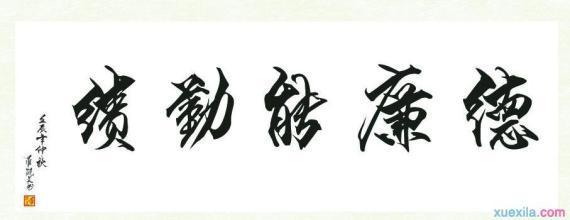 德廉能勤績
壬辰年仲秋
xuexila.com